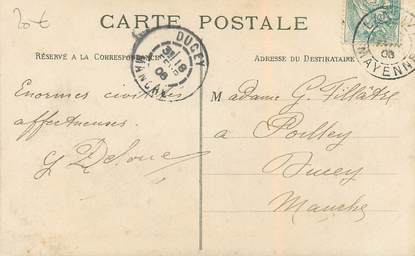 20 €
CARTE POSTALE
RÉSERVÉ A LA CORRESPONDANCE
ADRESSE DU DESTINATAIRE
DUCEY
18
08
MANCHE
MAYENNE
08
Enormes civilités
affectueuses.
Madame G. Pillâtre
a Poilley
Ducey
Manche